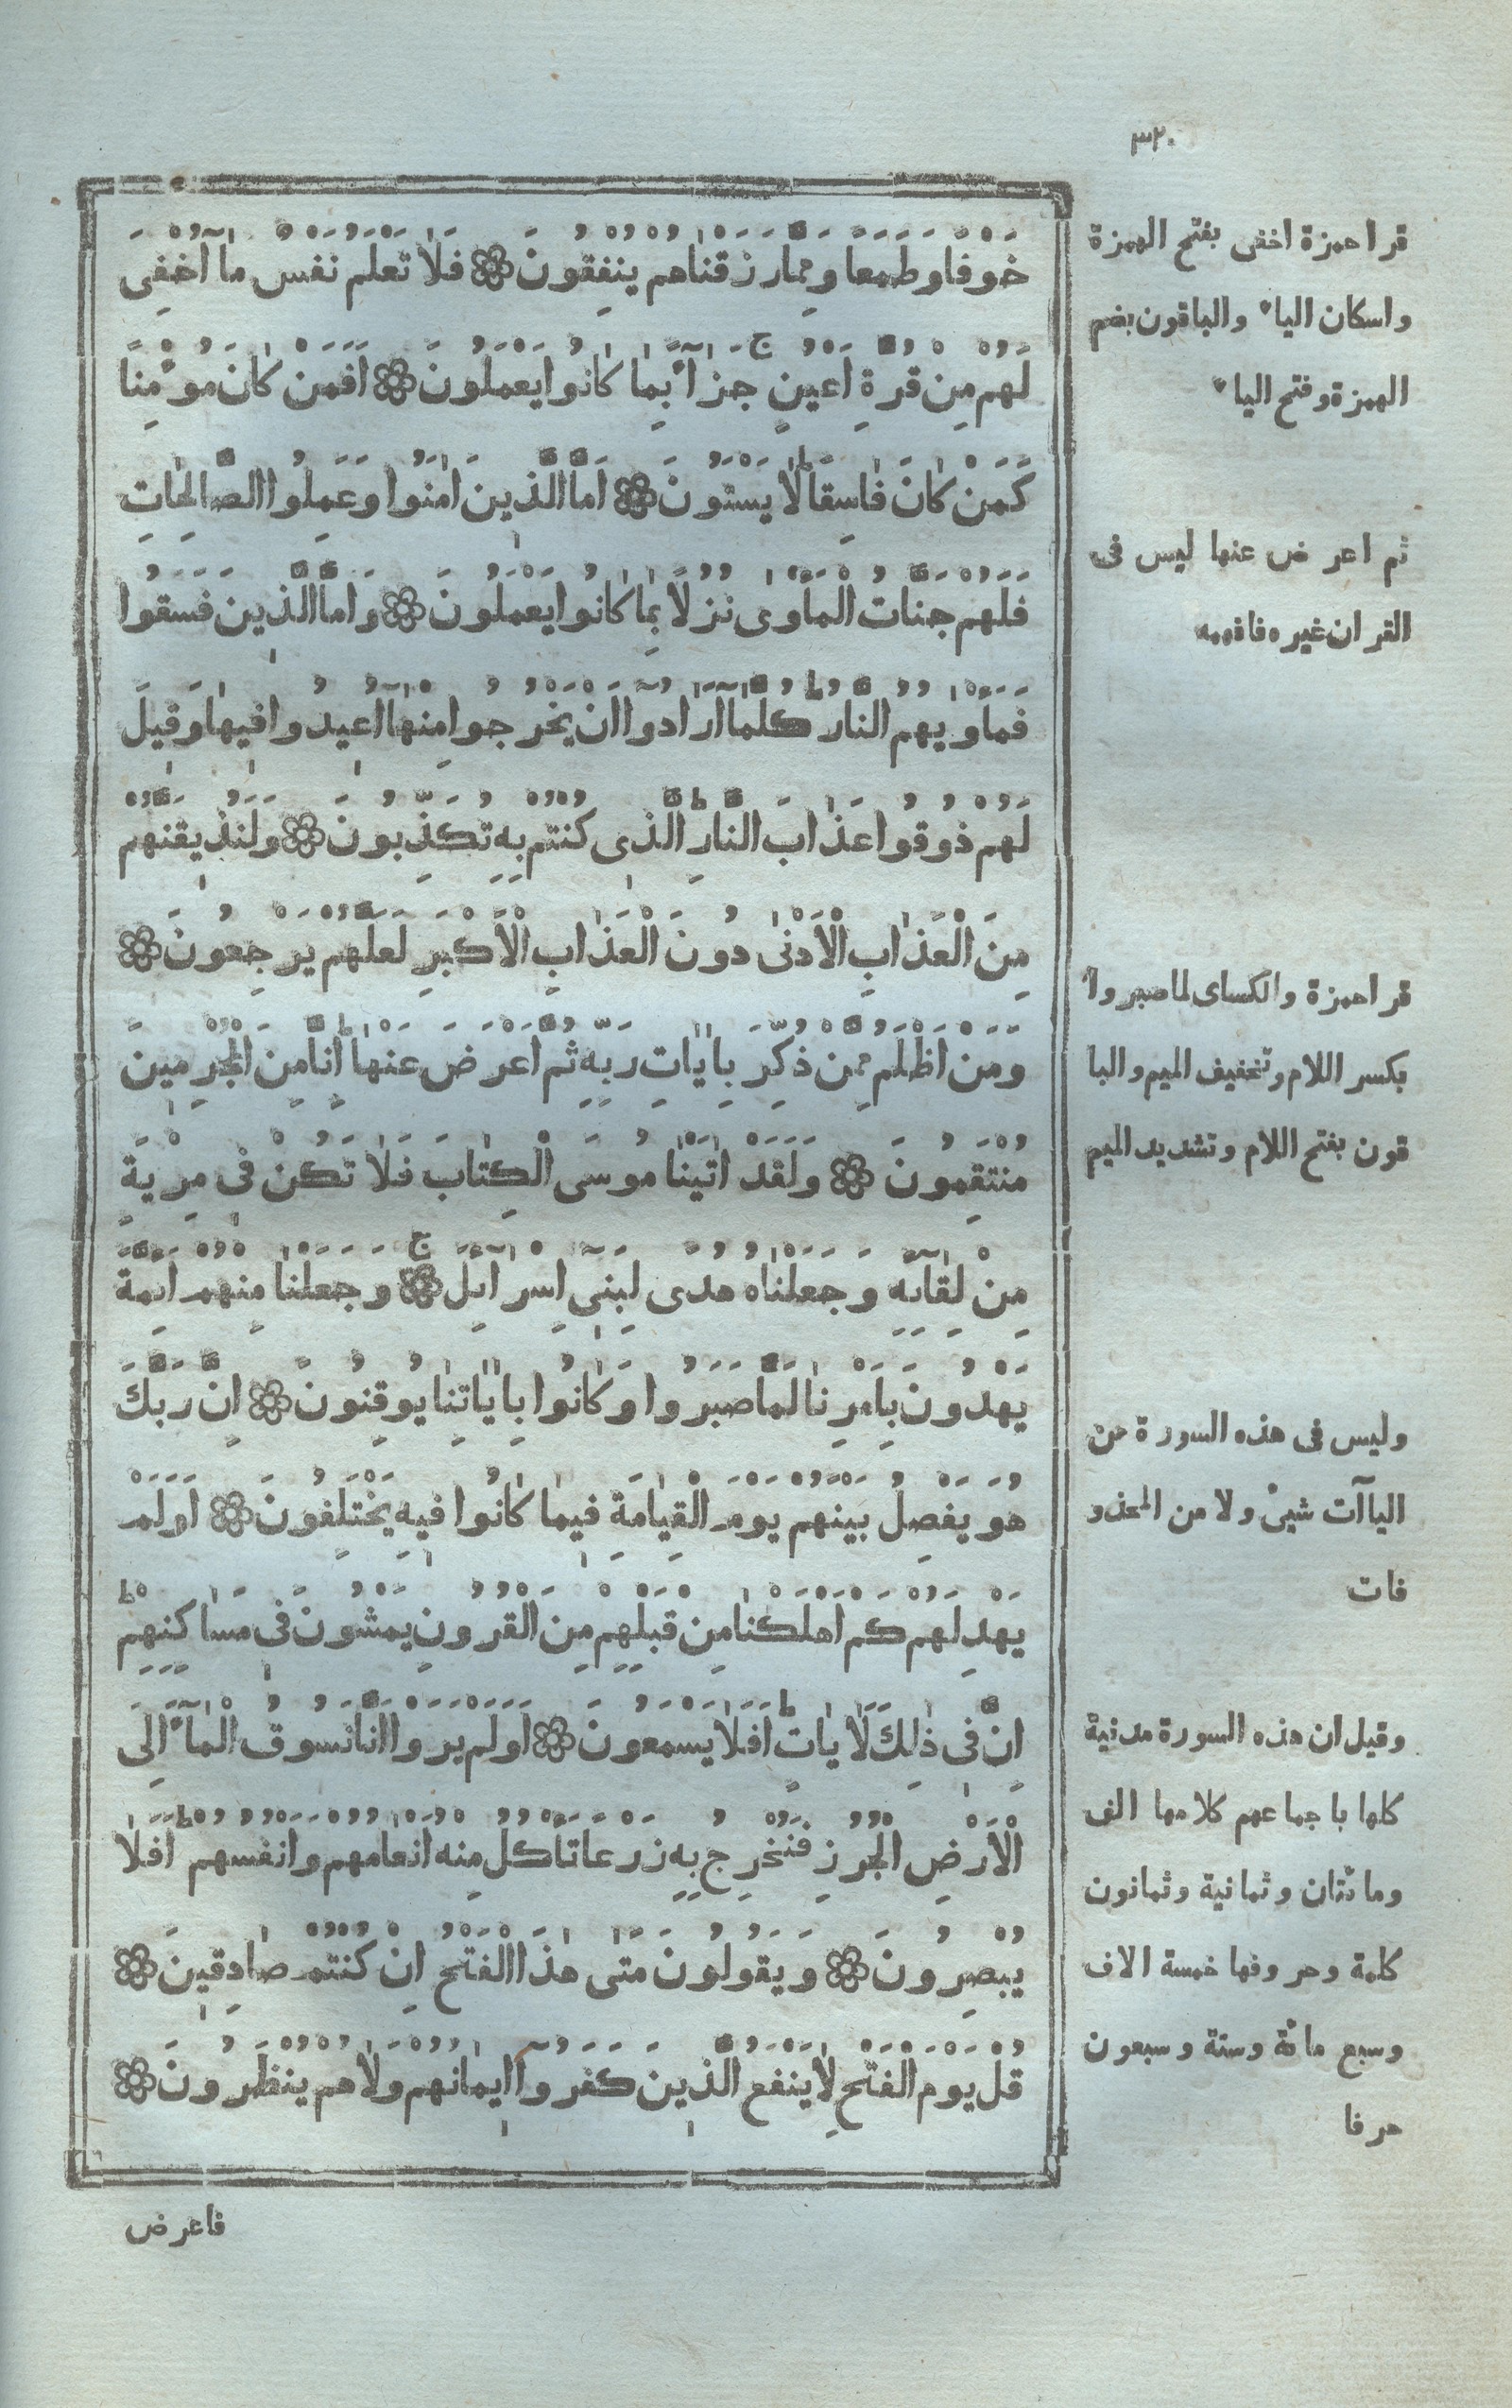 ٣٢٠
خَوْفًا وَطَمَعًا وَمِمَّا رَزَقْنَاهُمْ يُنْفِقُونَ ۞ فَلَا تَعْلَمُ نَفْسٌ مَآ اُخْفِىَ
لَهُمْ مِنْ قُرَّةِ اَعْيُنٍ ۚ جَزَآءً بِمَا كَانُوا يَعْمَلُونَ ۞ اَفَمَنْ كَانَ مُؤْمِنًا
كَمَنْ كَانَ فَاسِقًا ط لَا يَسْتَوُنَ ۞ اَمَّا الَّذِينَ اٰمَنُوا وَعَمِلُوا الصَّالِحَاتِ
فَلَهُمْ جَنَّاتُ الْمَأْوٰى نُزُلًا بِمَا كَانُوا يَعْمَلُونَ ۞ وَاَمَّا الَّذِينَ فَسَقُوا
فَمَأْوٰيهُمُ النَّارُ ط كُلَّمَآ اَرَادُوٓا اَنْ يَخْرُجُوا مِنْهَآ اُعِيدُوا فِيهَا وَقِيلَ
لَهُمْ ذُوقُوا عَذَابَ النَّارِ ط الَّذِى كُنْتُمْ بِهِ تُكَذِّبُونَ ۞ وَلَنُذِيقَنَّهُمْ
مِنَ الْعَذَابِ الْاَدْنٰى دُونَ الْعَذَابِ الْاَكْبَرِ لَعَلَّهُمْ يَرْجِعُونَ ۞
وَمَنْ اَظْلَمُ مِمَّنْ ذُكِّرَ بِاٰيَاتِ رَبِّهِ ثُمَّ اَعْرَضَ عَنْهَا ط اِنَّا مِنَ الْمُجْرِمِينَ
مُنْتَقِمُونَ ۞ وَلَقَدْ اٰتَيْنَا مُوسَى الْكِتَابَ فَلَا تَكُنْ فِى مِرْيَةٍ
مِنْ لِقَآئِهِ وَجَعَلْنَاهُ هُدًى لِبَنِىٓ اِسْرَآئِلَ ۚ ۞ وَجَعَلْنَا مِنْهُمْ اَئِمَّةً
يَهْدُونَ بِاَمْرِنَا لَمَّا صَبَرُوا وَكَانُوا بِاٰيَاتِنَا يُوقِنُونَ ۞ اِنَّ رَبَّكَ
هُوَ يَفْصِلُ بَيْنَهُمْ يَوْمَ الْقِيَامَةِ فِيمَا كَانُوا فِيهِ يَخْتَلِفُونَ ۞ اَوَلَمْ
يَهْدِ لَهُمْ كَمْ اَهْلَكْنَا مِنْ قَبْلِهِمْ مِنَ الْقُرُونِ يَمْشُونَ فِى مَسَاكِنِهِمْ ط
اِنَّ فِى ذٰلِكَ لَاٰيَاتٍ ط اَفَلَا يَسْمَعُونَ ۞ اَوَلَمْ يَرَوْا اَنَّا نَسُوقُ الْمَآءَ اِلَى
الْاَرْضِ الْجُرُزِ فَنُخْرِجُ بِهِ زَرْعًا تَأْكُلُ مِنْهُ اَنْعَامُهُمْ وَاَنْفُسُهُمْ ط اَفَلَا
يُبْصِرُونَ ۞ وَيَقُولُونَ مَتٰى هٰذَا الْفَتْحُ اِنْ كُنْتُمْ صَادِقِينَ ۞
قُلْ يَوْمَ الْفَتْحِ لَا يَنْفَعُ الَّذِينَ كَفَرُوٓا اِيمَانُهُمْ وَلَا هُمْ يُنْظَرُونَ ۞
فاعرض
قرا حمزة اخفى بفتح الهمزة
واسكان الياء والباقون بضم
الهمزة وفتح الياء
ثم اعرض عنها ليس فى
القران غيره فافهمه
قرا حمزة والكساى لما صبروا
بكسر اللام وتخفيف الميم والبا
قون بفتح اللام وتشديد الميم
وليس فى هذه السورة من
الياآت شىء ولا من المحذو
فات
وقيل ان هذه السورة مدنية
كلها باجماعهم كلامها الف
ومائتان وثمانية وثمانون
كلمة وحروفها خمسة الاف
وسبع مائة وستة وسبعون
حرفا